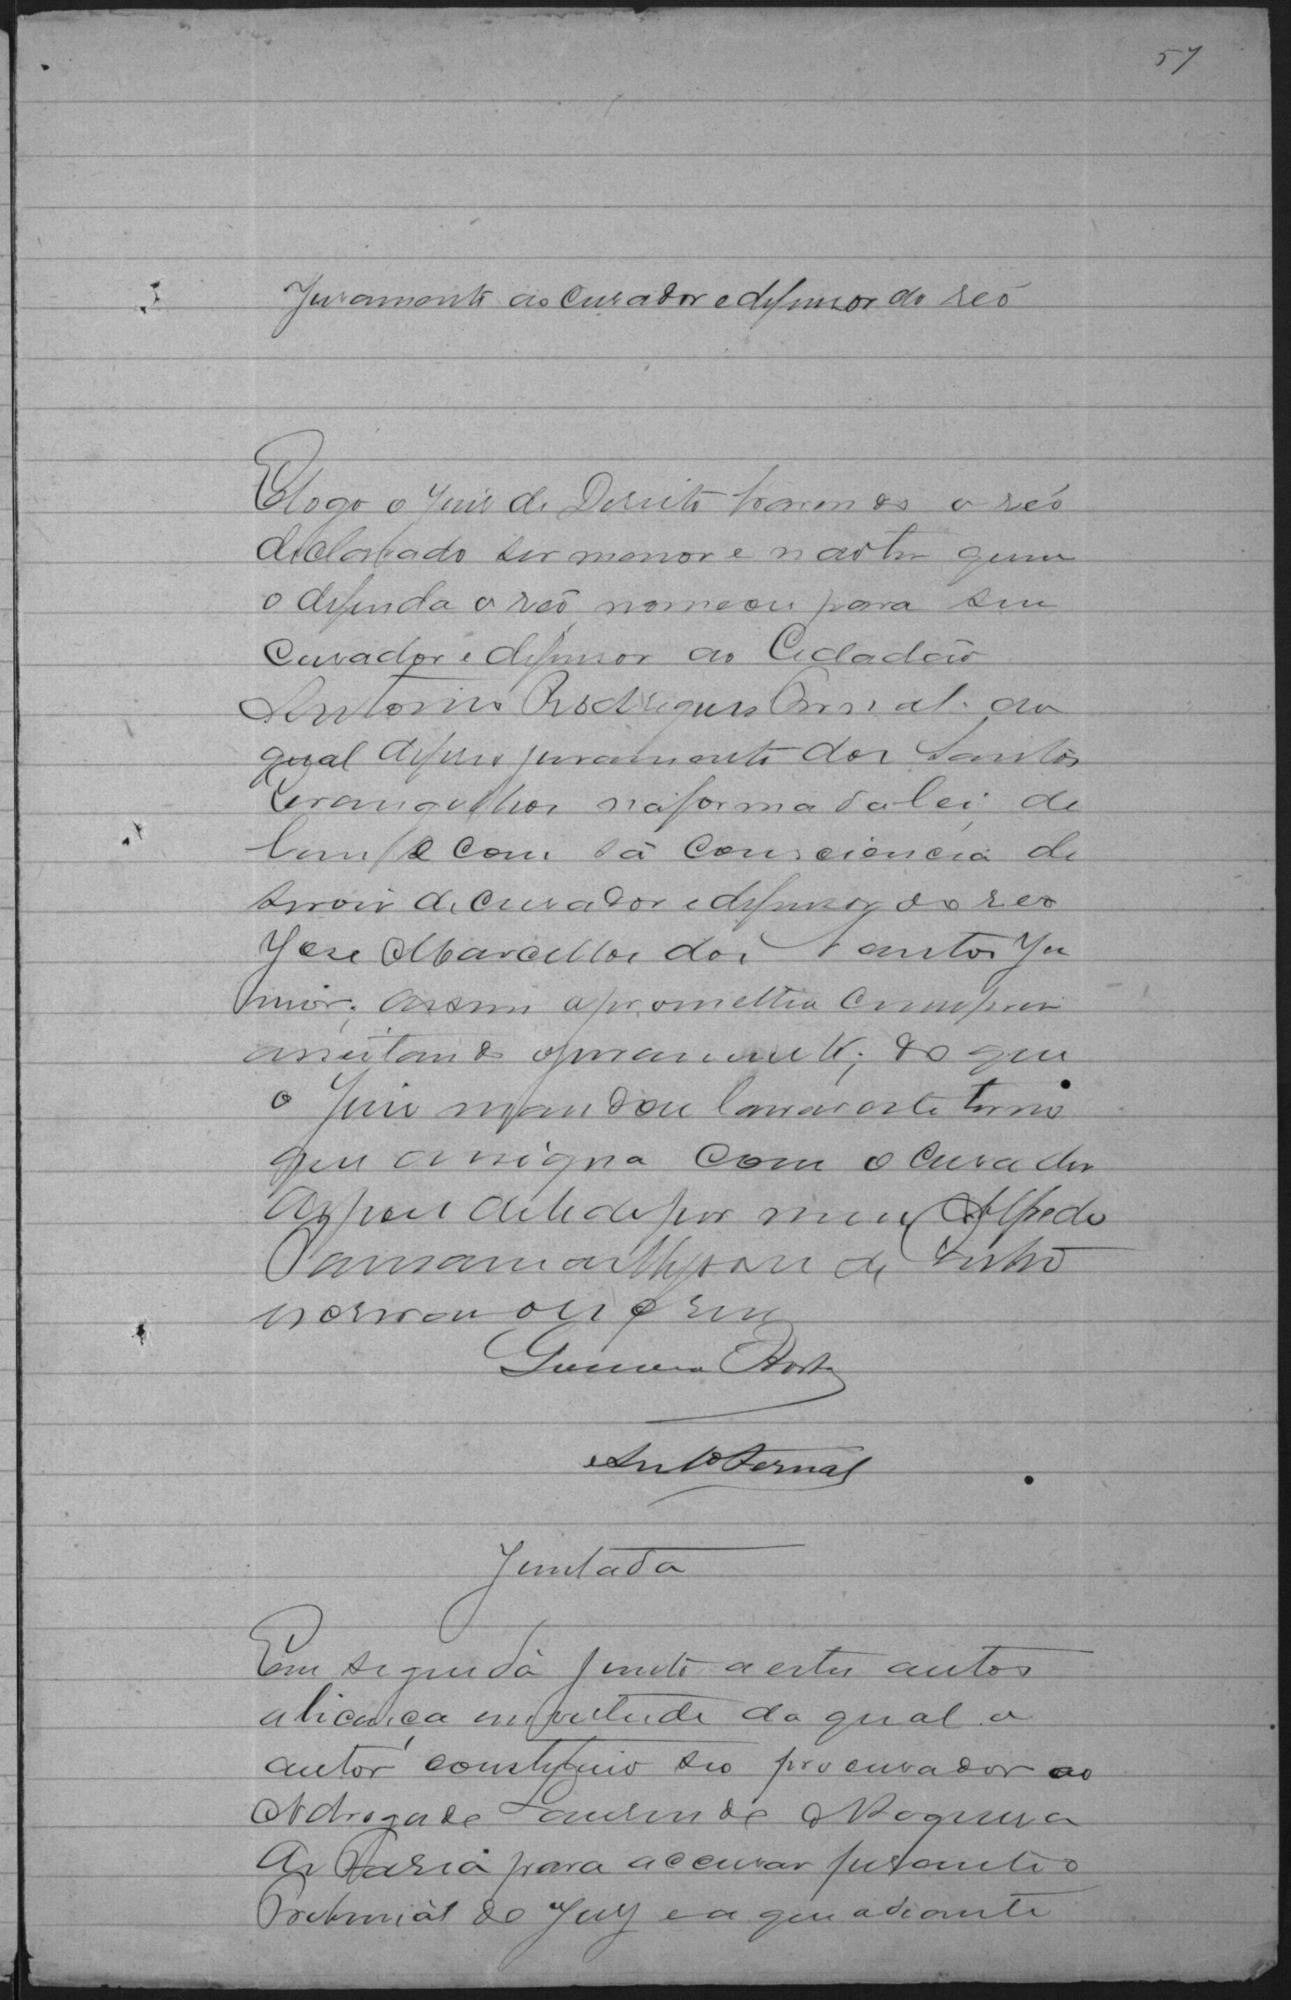 57
Juramento ao curador e defensor do reó
E logo o Juiz de Direito havendo o reó
declarado ser menor e não ter quem
o defenda o reó, nomeou para seu
Curador e defensor ao Cidadão
Antonio Rodrigues Fernal. ao
qual deferio juramento dos Santos
Evangelhos na forma da lei, de
bem e com sã consciencia de
servir de curador e defensor do reo
José Marcellos dos Santos Ju
nior; assim o prometteu cumprir
acceitando o juramento; do que
o Juiz mandou lavrar este termo
que assigna com o Curador
depois de lido por mim Alfredo
de
escrivão que o escrevi
Ant.º Fernal
Juntada
Em seguida junto a estes autos
a licença em vertude da qual o
autor constituio seo procurador ao
Advogado Laurindo Nogueira
de Faria para accusar perante o
Tribunal do Jury e a que adiante